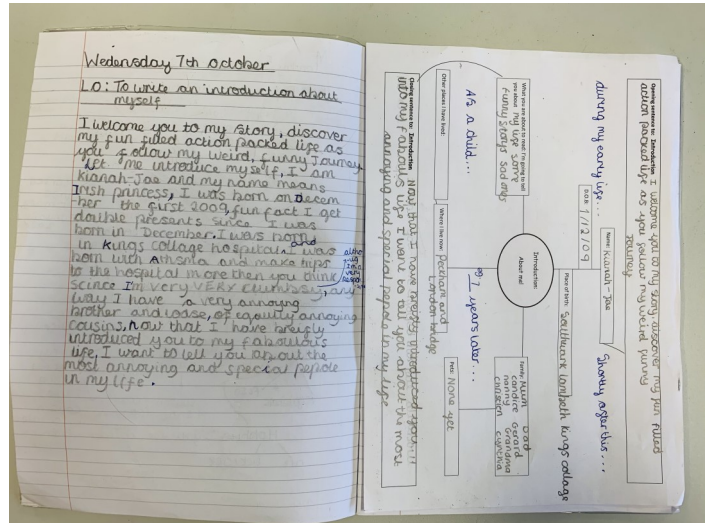 Wedensday 7th october
L.O: To write an introduction about
myself
I welcome you to my story, discover
my fun filled action packed life as
you follow my weird, funny Journey
Let me introduce myself, I am
Kianah-Jae and my name means
Irish princess, I was born on Decem
-ber the first 2009, fun fact I get
double presents since I was
born in December. I was born
in Kings collage hospital. I was and
born with Athsma and make trips
to the hospital more then you think
scince I'm very VERY clumbsy, any
way I have a very annoyng
brother and loose, of equally annoying
cousins, now that I have breifly
introduced you to my faboulous
life, I want to tell you about the
most annoying and special pepole
in my life.
Opening sentence to: Introduction I welcome you to my story, discover my fun filled
action packed life as you follow my weird funny
Journey
during my early life...
Name: Kianah-Jae
Shortly after this...
DOB: 1/12/09
Place of birth: Southwark Lambeth Kings collage
What you are about to read: I'm going to tell
you about my life some
funny storys sad ones
Introduction:
About me!
Family: Mum Dad
candice Gerard
nanny Grandma
christen cynthia
As a child...
7 years later...
Other places I have lived:
Where I live now: Peckham and
London bridge
Pets: None yet
Closing sentence to: Introduction Now that I have breifly introduced you
into my fabouls life I want to tell you about the most
annoying and special pepole in my life